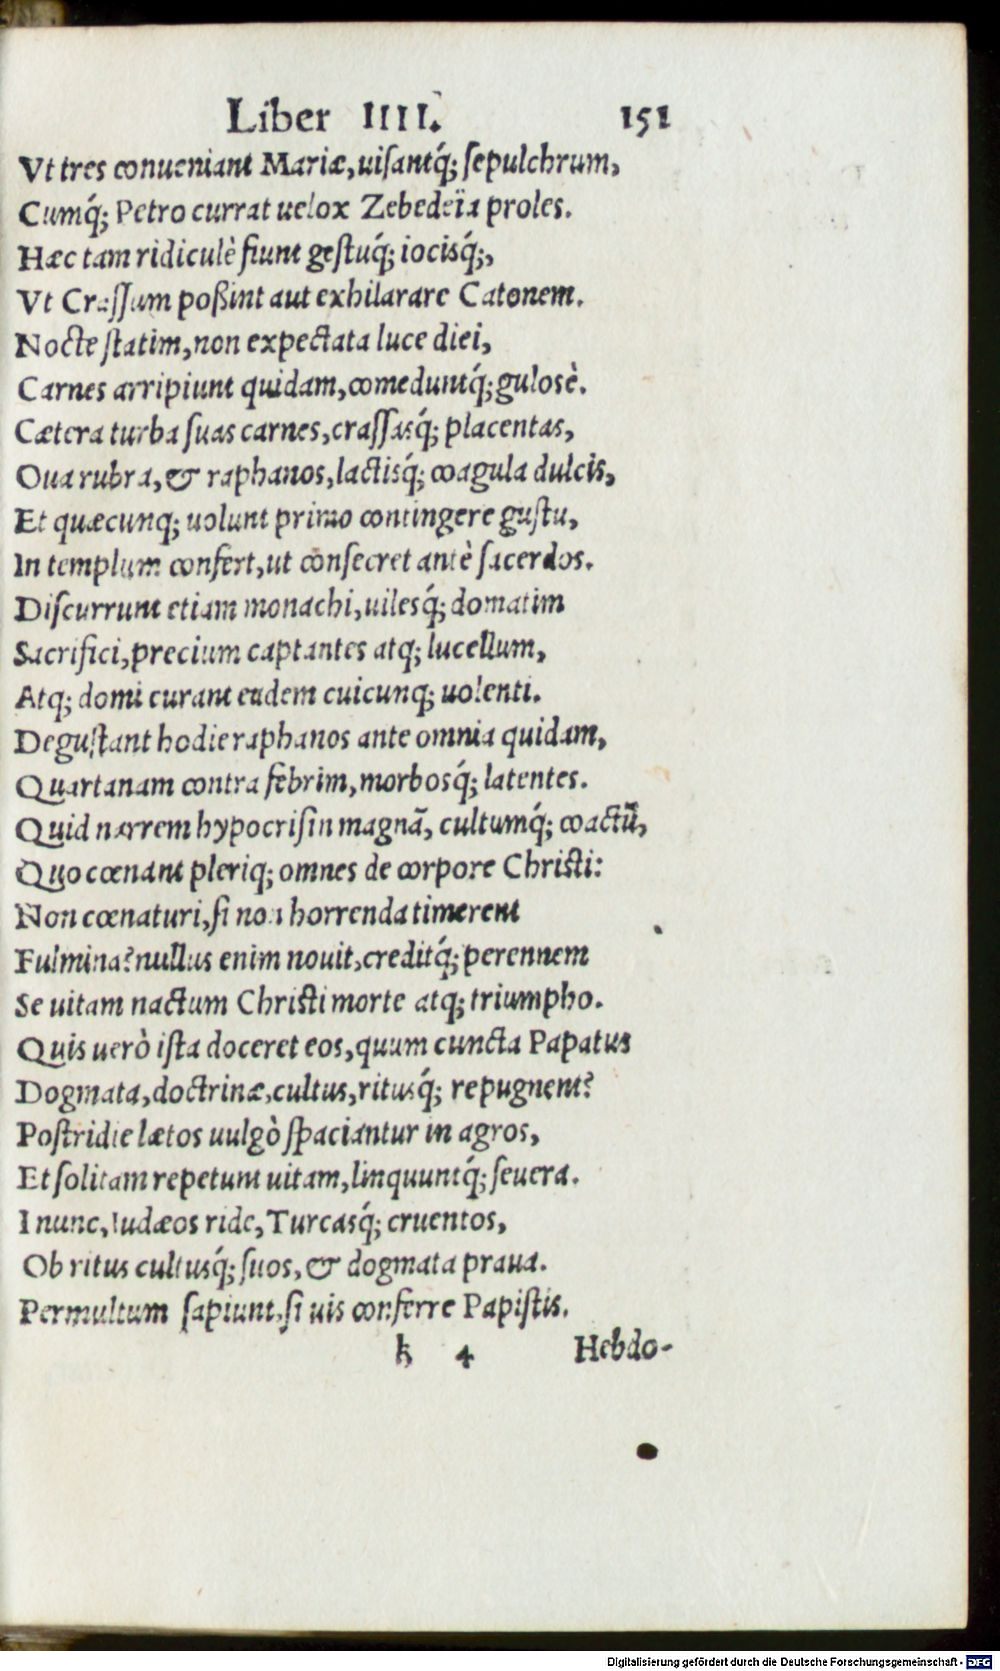 Liber IIII. 151
Vt tres conueniant Mariæ, uisantq́; sepulchrum,
Cumq́; Petro currat uelox Zebedeïa proles.
Hæc tam ridiculè fiunt gestuq́; iocisq́;,
Vt Crassum poßint aut exhilarare Catonem.
Nocte statim, non expectata luce diei,
Carnes arripiunt quidam, comeduntq́; gulosè.
Cætera turba suas carnes, crassasq́; placentas,
Oua rubra, & raphanos, lactisq́; coagula dulcis,
Et quæcunq; uolunt primo contingere gustu,
In templum confert, ut consecret antè sacerdos.
Discurrunt etiam monachi, uilesq́; domatim
Sacrifici, precium captantes atq; lucellum,
Atq; domi curant eadem cuicunq; uolenti.
Degustant hodie raphanos ante omnia quidam,
Quartanam contra febrim, morbosq́; latentes.
Quid narrem hypocrisin magnã, cultumq́; coactũ,
Quo cœnant pleriq; omnes de corpore Christi:
Non cœnaturi, si non horrenda timerent
Fulmina? nullus enim nouit, creditq́; perennem
Se uitam nactum Christi morte atq; triumpho.
Quis uerò ista doceret eos, quum cuncta Papatus
Dogmata, doctrinæ, cultus, ritusq́; repugnent?
Postridie lætos uulgò spaciantur in agros,
Et solitam repetunt uitam, linquuntq́; seuera.
I nunc, Iudæos ride, Turcasq́; cruentos,
Ob ritus cultusq́; suos, & dogmata praua.
Permultum sapiunt, si uis conferre Papistis.
k 4 Hebdo-
Digitalisierung gefördert durch die Deutsche Forschungsgemeinschaft - DFG